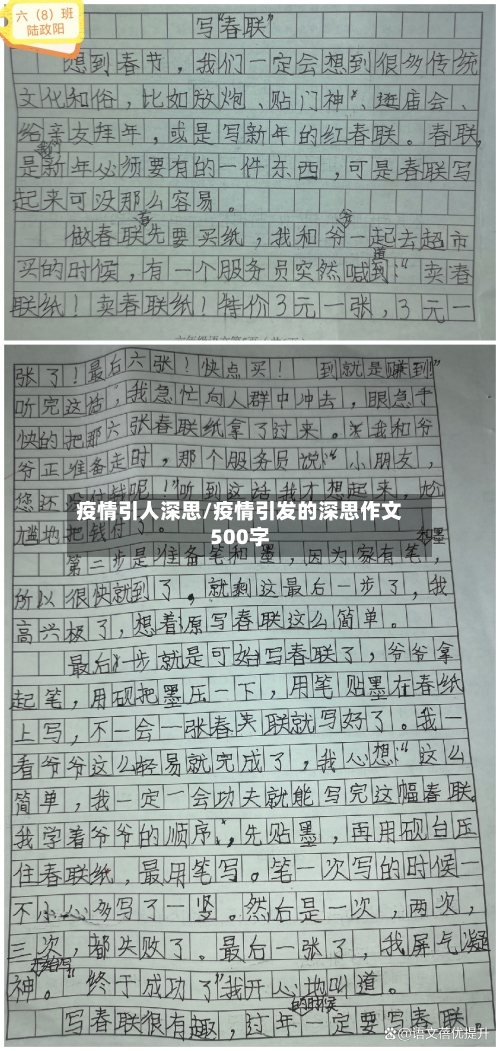 六（8）班
陆政阳
写“春联”
想到春节，我们一定会想到很多传统
文化和俗，比如放炮、贴门神、逛庙会、
给亲友拜年，或是写新年的红春联。春联，
是新年必须要有的一件东西，可是春联写
起来可没那么容易。
做春联先要买纸，我和爷一起去超市
买的时候，有一个服务员突然喊到：“卖春
联纸！卖春联纸！特价3元一张，3元一
张了！最后六张！快点买！ 到就是赚到”
听完这话，我急忙向人群中冲去，眼急手
快的把那六张春联纸拿了过来。我和爷
爷正准备走时，那个服务员说“小朋友，
您还没付钱呢！”听到这话我才想起来，尬
尴地把钱付了。
疫情引人深思/疫情引发的深思作文
500字
第二步是准备笔和墨，因为家有笔，
和墨
所以很快就到了，就剩这最后一步了，我
高兴极了，想着原写春联这么简单。
最后一步就是可始写春联了，爷爷拿
起笔，用砚把墨压一下，用笔贴墨在春纸
上写，不一会一张春联就写好了。我一
看爷爷这么轻易就完成了，我心想：“这么
简单，我一定一会功夫就能写完这幅春联。
我学着爷爷的顺序，先贴墨，再用砚台压
住春联纸，最用笔写。笔一次写的时候一
不小心多写了一竖。然后是一次，两次，
三次，都失败了。最后一张了，我屏气凝
神。“终于成功了”我开心地叫道。
的时候
写春联很有趣，过年一定要写春联。
@语文蓓优提升